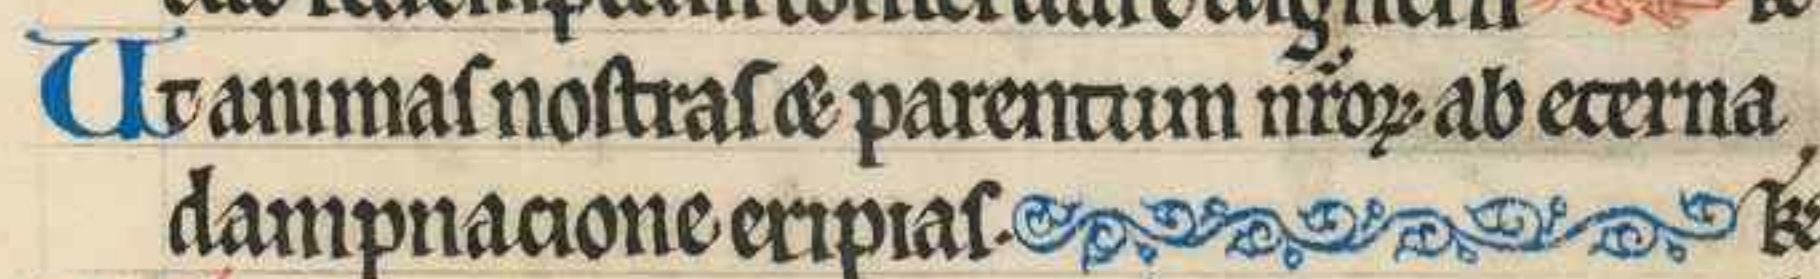 Ut animas nostras & parentum nr̄oꝝ ab eterna
dampnacione eripias.